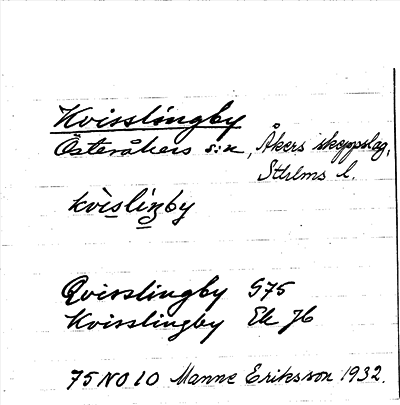 Kvisslingby
Österåkers s:n, Åkers skeppslag,
Sthlms l.
kvìslìŋby
Qvisslingby G75
Kvisslingby Ek J6
75 NO 10 Manne Eriksson 1932.